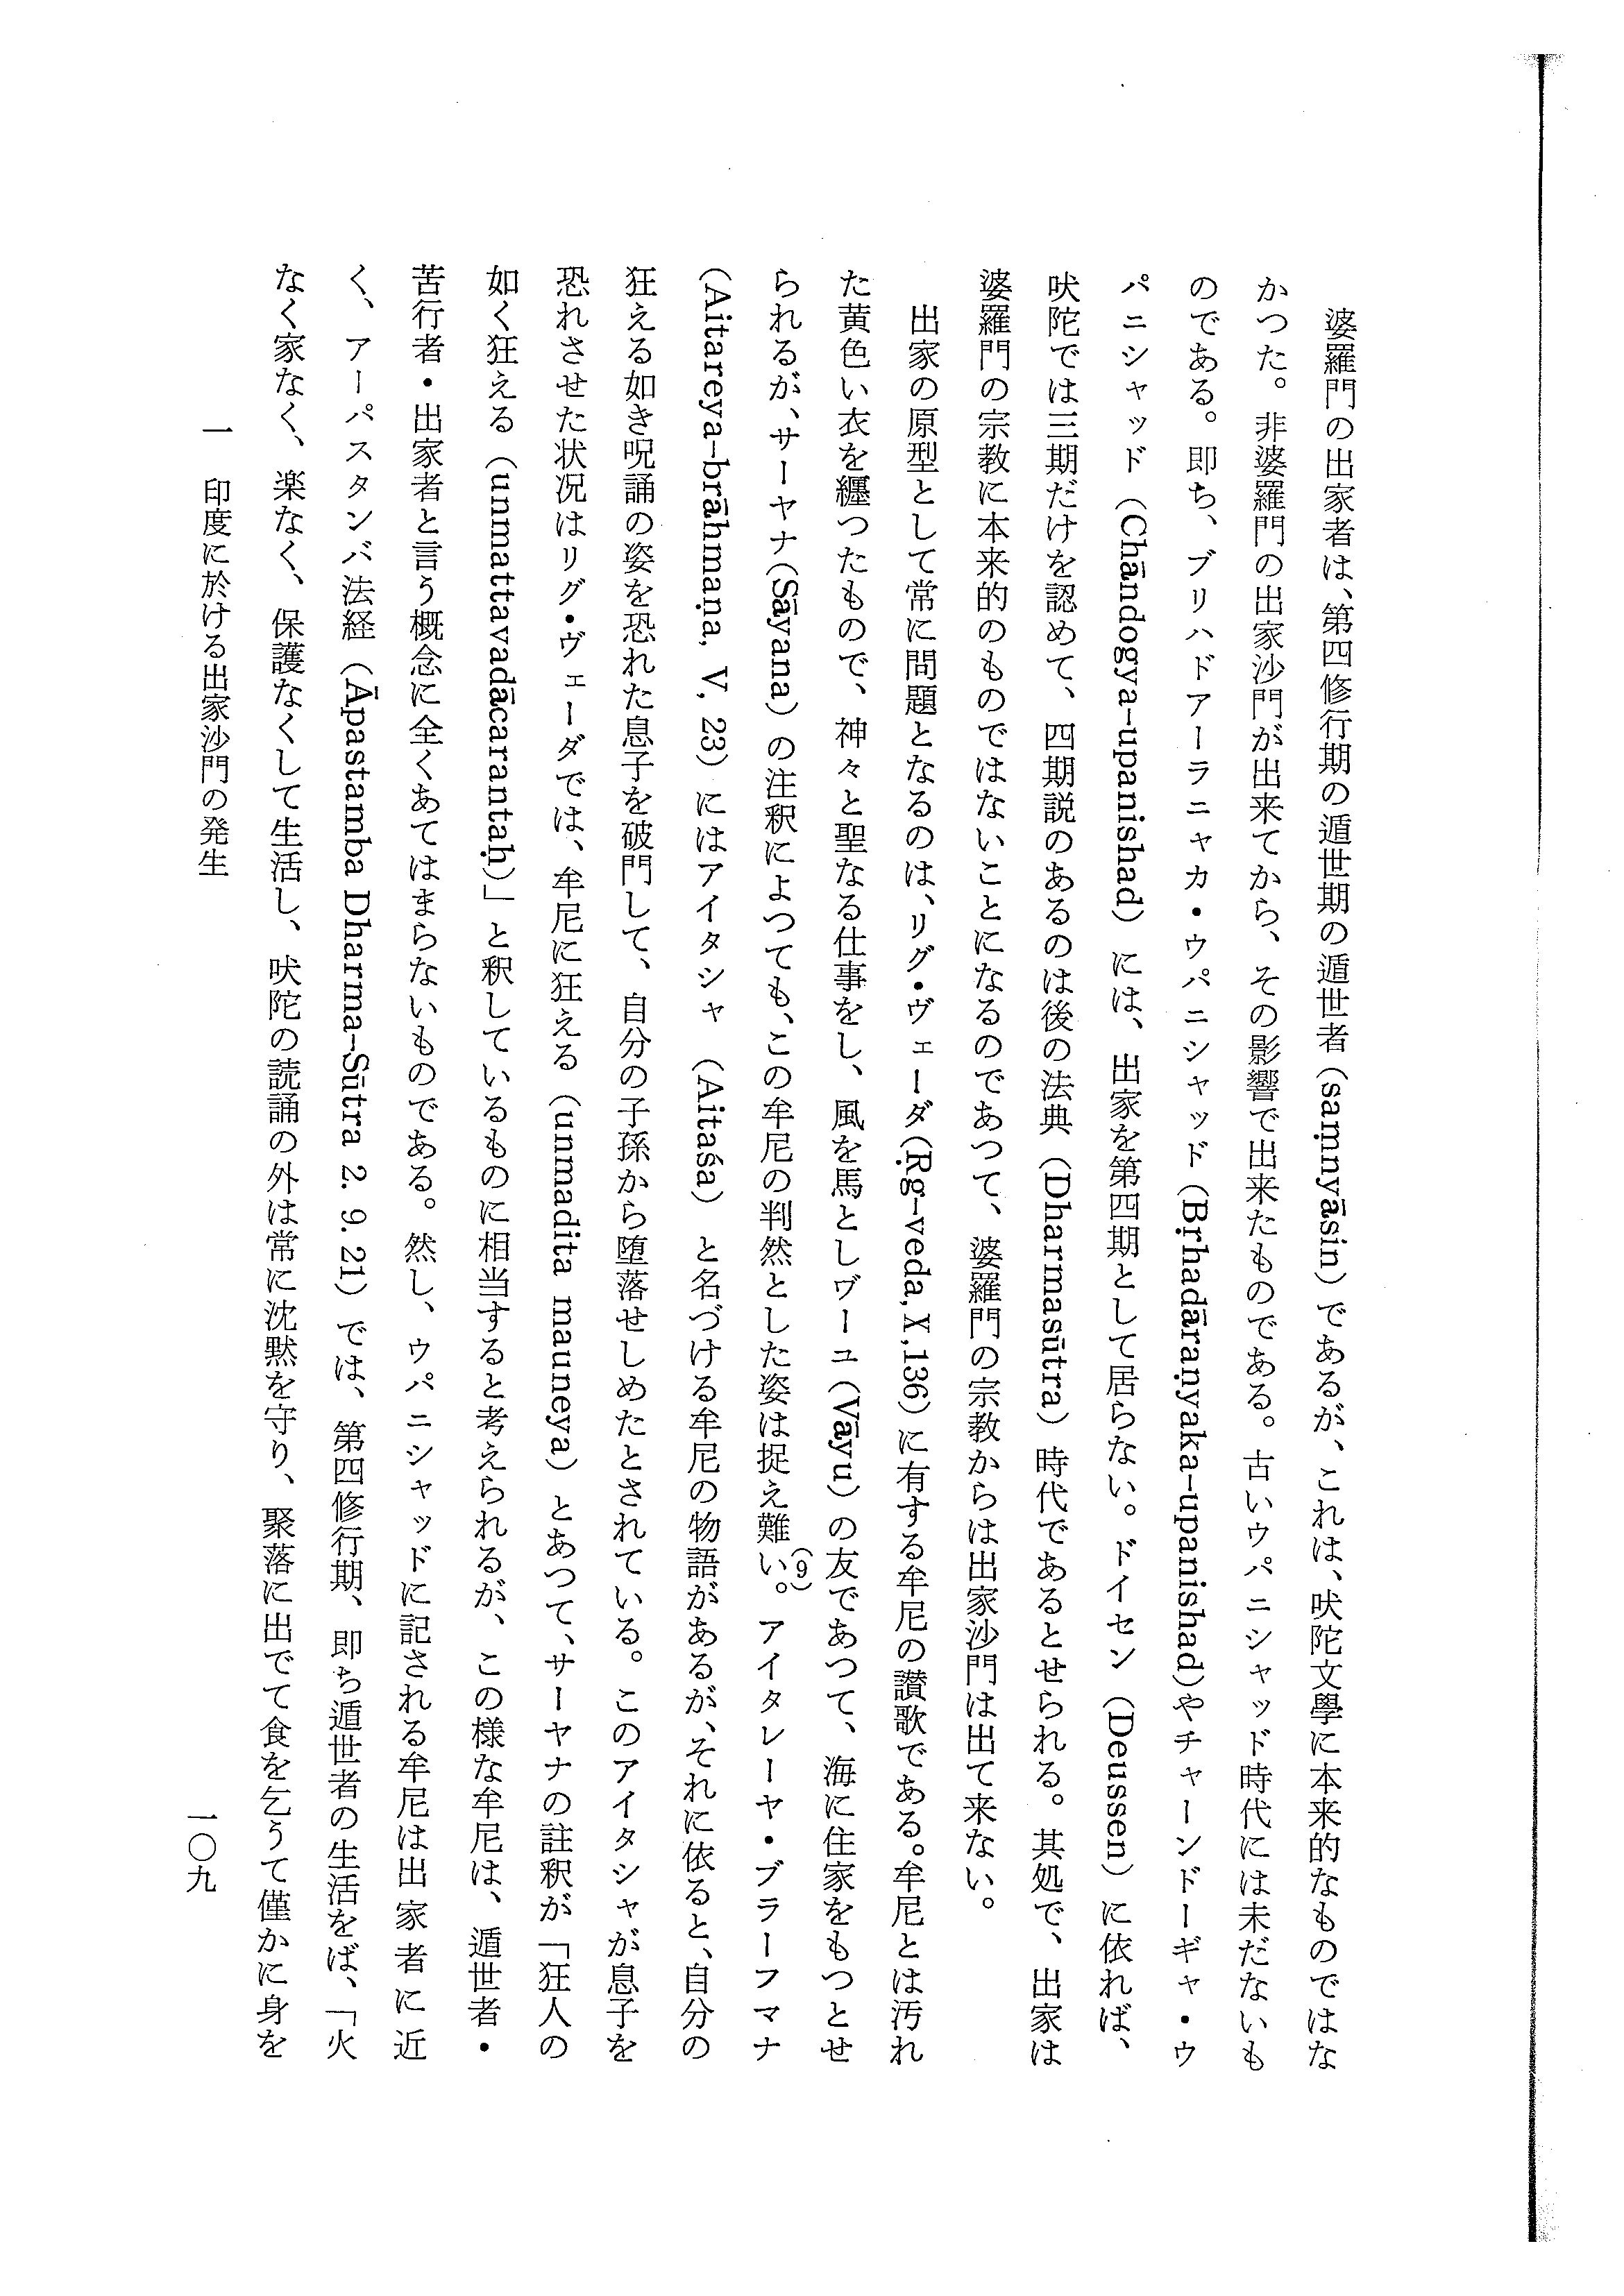 婆羅門の出家者は、第四修行期の遁世期の遁世者(saṃnyāsin)であるが、これは、吠陀文學に本来的なものではな
かつた。非婆羅門の出家沙門が出来てから、その影響で出来たものである。古いウパニシャッド時代には未だないも
のである。即ち、ブリハドアーラニャカ・ウパニシャッド(Bṛhadāraṇyaka-upanishad)やチャーンドーギャ・ウ
パニシャッド(Chāndogya-upanishad)には、出家を第四期として居らない。ドイセン(Deussen)に依れば、
吠陀では三期だけを認めて、四期説のあるのは後の法典(Dharmasūtra)時代であるとせられる。其処で、出家は
婆羅門の宗教に本来的のものではないことになるのであつて、婆羅門の宗教からは出家沙門は出て来ない。
出家の原型として常に問題となるのは、リグ・ヴェーダ(Ṛg-veda, X, 136)に有する牟尼の讃歌である。牟尼とは汚れ
た黄色い衣を纒つたもので、神々と聖なる仕事をし、風を馬としヴーユ(Vāyu)の友であつて、海に住家をもつとせ
られるが、サーヤナ(Sāyana)の注釈によつても、この牟尼の判然とした姿は捉え難い。(9)アイタレーヤ・ブラーフマナ
(Aitareya-brāhmaṇa, V, 23)にはアイタシャ(Aitaśa)と名づける牟尼の物語があるが、それに依ると、自分の
狂える如き呪誦の姿を恐れた息子を破門して、自分の子孫から堕落せしめたとされている。このアイタシャが息子を
恐れさせた状況はリグ・ヴェーダでは、牟尼に狂える(unmadita mauneya)とあつて、サーヤナの註釈が「狂人の
如く狂える(unmattavadācarantaḥ)」と釈しているものに相当すると考えられるが、この様な牟尼は、遁世者・
苦行者・出家者と言う概念に全くあてはまらないものである。然し、ウパニシャッドに記される牟尼は出家者に近
く、アーパスタンバ法経(Āpastamba Dharma-Sūtra 2. 9. 21)では、第四修行期、即ち遁世者の生活をば、「火
なく家なく、楽なく、保護なくして生活し、吠陀の読誦の外は常に沈黙を守り、聚落に出でて食を乞うて僅かに身を
一 印度に於ける出家沙門の発生
一〇九